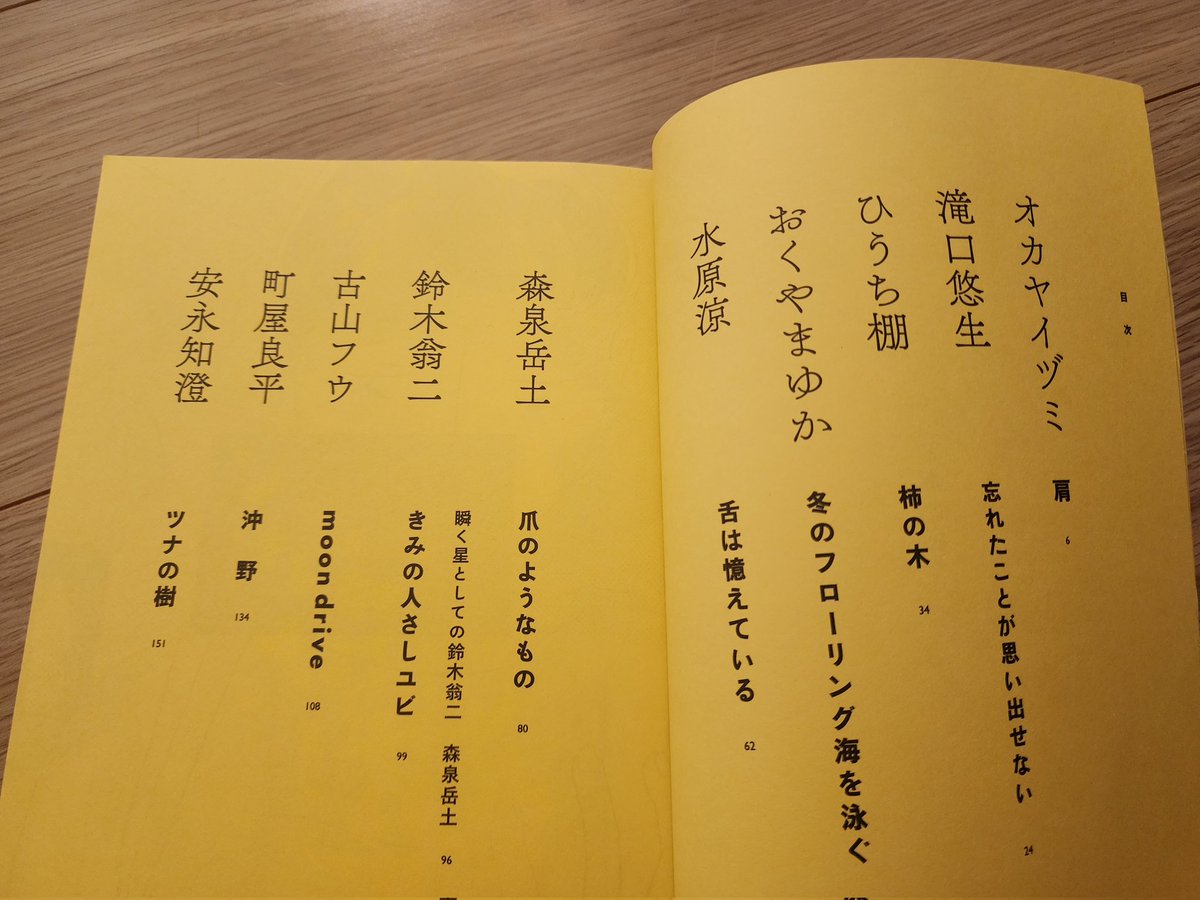 目次
オカヤイヅミ
肩 6
滝口悠生
忘れたことが思い出せない 24
ひうち棚
柿の木 34
おくやまゆか
冬のフローリング海を泳ぐ
水原涼
舌は憶えている 62
森泉岳土
爪のようなもの 80
瞬く星としての鈴木翁二 森泉岳土 96
鈴木翁二
きみの人さしユビ 99
古山フウ
moon drive 108
町屋良平
沖野 134
安永知澄
ツナの樹 151